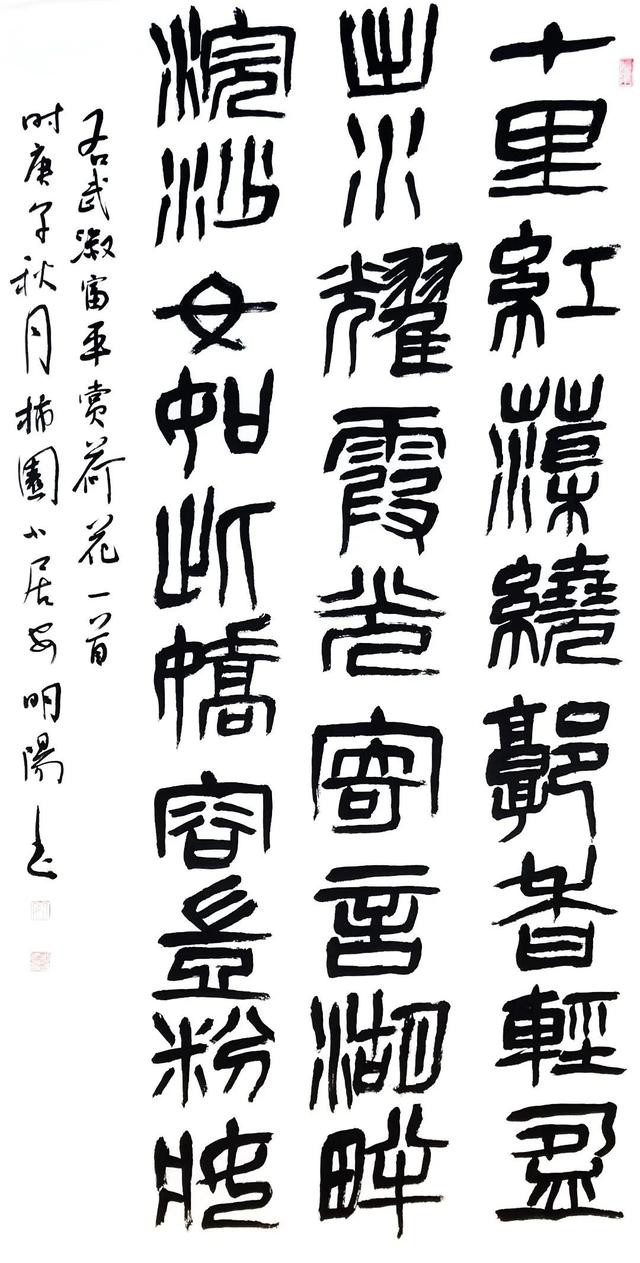 十里紅蕖繞郭香輕盈
出水耀霞光寄言湖畔
浣沙女如此嬌容豈粉妝
右武淑富平賞荷花一首
时庚子秋月柿園小居安明陽书